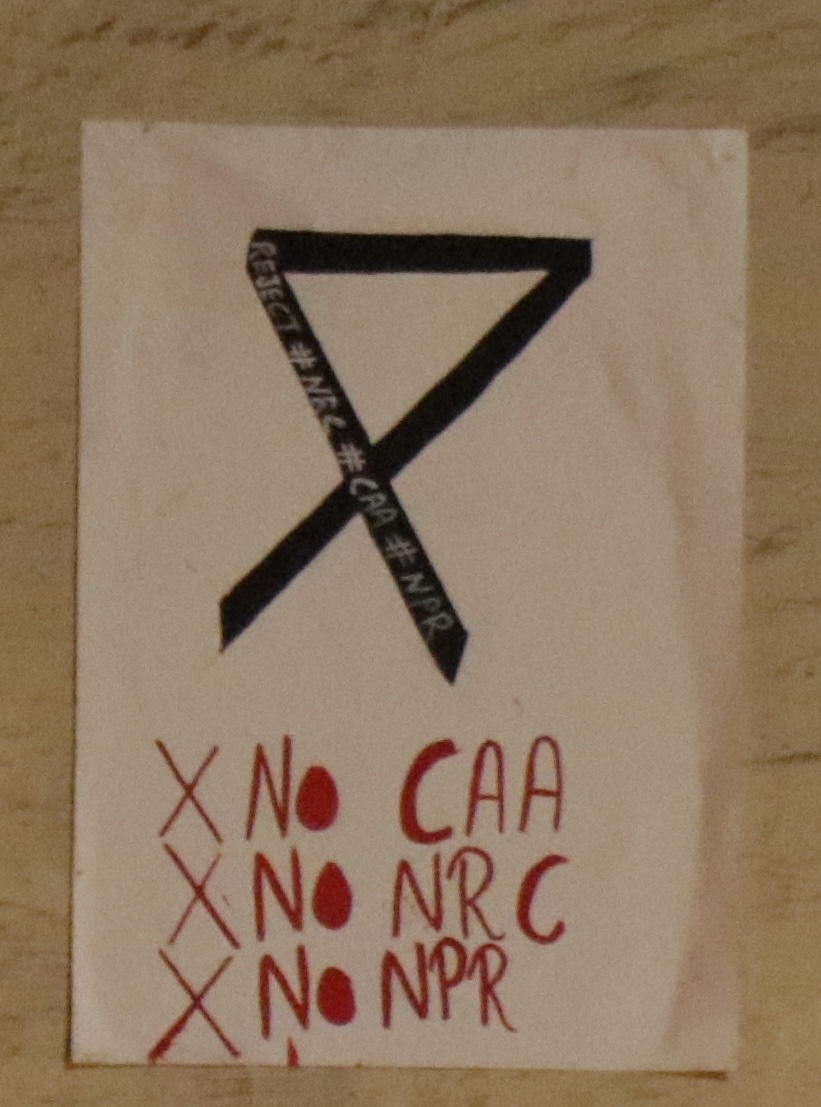 REJECT #NRC #CAA #NPR
X NO CAA
X NO NRC
X NO NPR